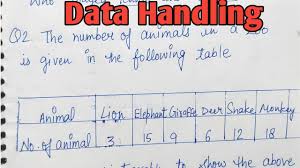 Data Handling
Q2. The number of animals in a zoo
is given in the following table
Animal Lion Elephant Giraffe Deer Snake Monkey
No. of animal 3 15 9 6 12 18
to show the above